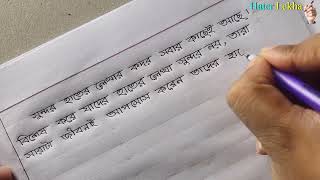 Hater Lekha
সুন্দর হাতের লেখার কদর সবার কাছেই আছে!
বিশেষ করে যাদের হাতের লেখা সুন্দর নয়, তারা
সারাটা জীবনই আপসোস করেন তাদের হা